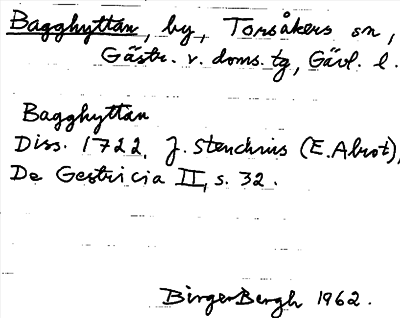 Bagghyttan, by, Torsåkers sn,
Gästr. v. doms. tg, Gävl. l.
Bagghyttan
Diss. 1722, J. Stenchius (E. Abrot),
De Gestricia II, s. 32.
Birger Bergh 1962.